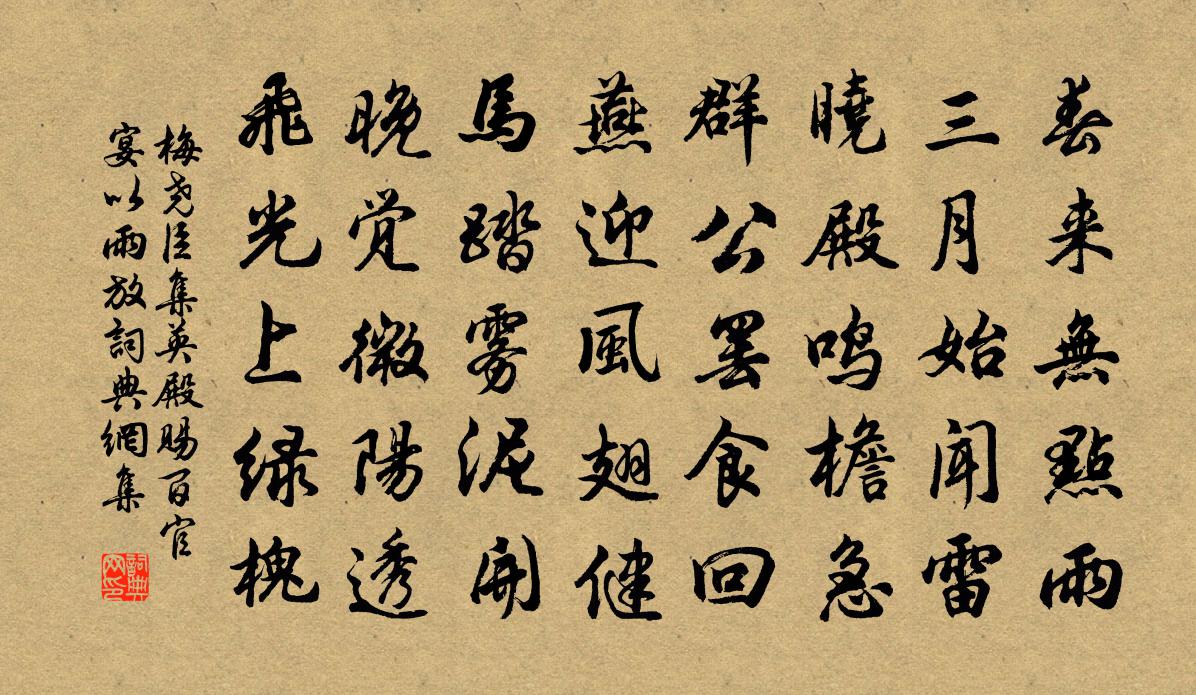 春来無點雨
三月始闻雷
曉殿鸣檐急
群公罢食回
燕迎風翅健
馬踏雾泥開
晚觉微陽透
飛光上绿槐
梅尧臣集英殿賜百官
宴以雨放詞典網集
詞典
网印